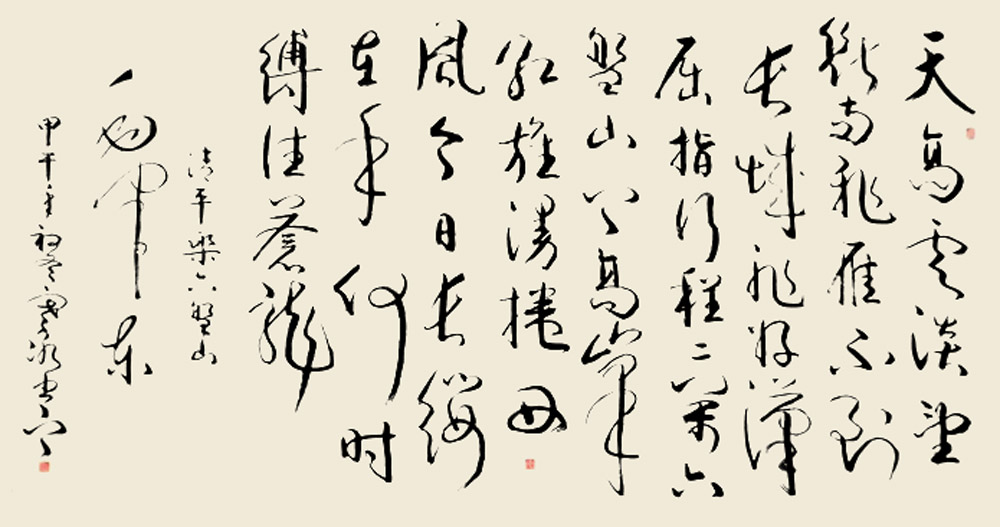 天高云淡望
断南飞雁不到
长城非好汉
屈指行程二万六
盘山上高峰
红旗漫捲西
风今日长缨
在手何时
缚住苍龙
清平乐六盘山
毛泽东
甲午年初冬